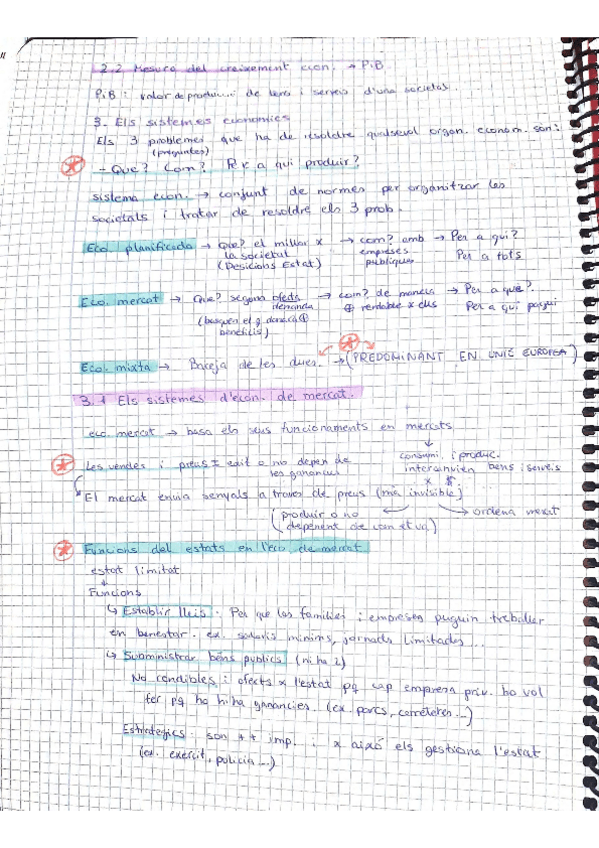 2.2 Mesura del creixement econ. → P.i.B
P.i.B : valor de producció de béns i serveis d'una societat.
3. Els sistemes econòmics
Els 3 problemes que ha de resoldre qualsevol organ. econom. són:
(preguntes)
- Que? Com? Per a qui produir?
sistema econ. → conjunt de normes per organitzar les
societats i tratar de resoldre els 3 prob.
Eco. planificada → Que? el millor x → com? amb → Per a qui?
la societat empreses Per a tots
(Desicions Estat) públiques
Eco. mercat → Que? segons oferta → com? de manera → Per a que?
demanda ⊕ rentable x ells Per a qui pagui
(busquen el q donarà ⊕
beneficis)
Eco. mixta → Barreja de les dues. → (PREDOMINANT EN UNIÓ EUROPEA)
3.1 Els sistemes d'econ. de mercat.
eco. mercat → basa els seus funcionaments en mercats
↓
consumi. i produc.
Les vendes i preus = exit o no depen de intercanvien béns i serveis
les ganancies x $.
El mercat envia senyals a traves de preus (mà invisible)
(produir o no → ordena mercat
depenent de com et va)
Funcions del estats en l'eco. de mercat
estat limitat
↓
Funcions
↳ Establir lleis: Per que les families i empreses puguin treballar
en benestar. ex. salaris minims, jornada limitades...
↳ Subministrar béns publics (ni ha 2)
No rendibles : oferts x l'estat pq cap empresa priv. ho vol
fer pq no hi ha ganancies. (ex. parcs, carreteres...)
Estrategics son ++ imp. i x això els gestiona l'estat
(ex. exercit, policia...)